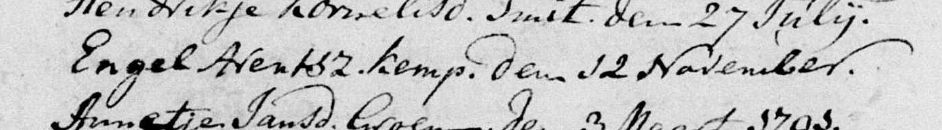 Hendrikje Kornelisd. Smit. den 27 Julij.
Engel Arentsz. Kemp. den 12 November.
Annetje Jansd. den 3 Maart